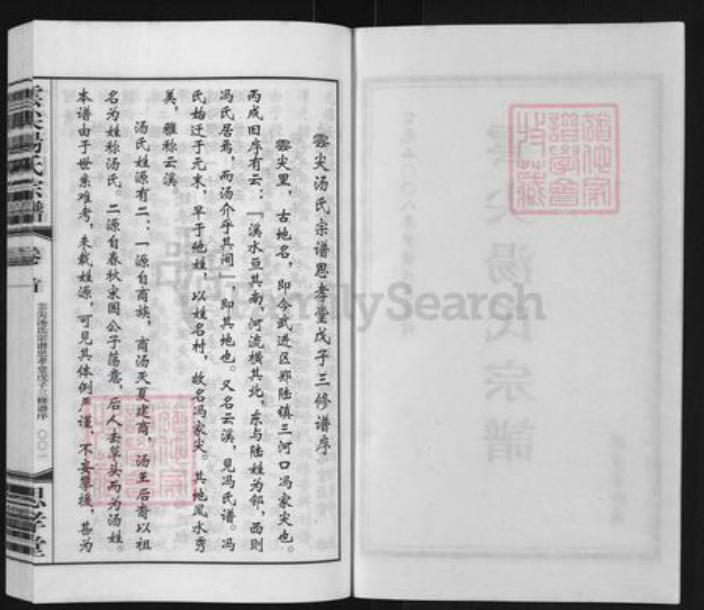 云尖汤氏宗谱思孝堂戊子三修谱序
云尖里，古地名，即今武进区郑陆镇三河口冯家尖也。
丙戌旧序有云：“溪水亘其南，河流横其北，东与陆姓为邻，西则
冯氏居焉，而汤介乎其间”，即其地也。又名云溪，见冯氏谱。冯
氏始迁于元末，早于他姓，以姓名村，故名冯家尖。其地风水秀
美，雅称云溪
汤氏姓源有二：一源自商族，商汤灭夏建商，汤王后裔以祖
名为姓称汤氏。二源自春秋宋国公子荡意，后人去草头而为汤姓。
本谱由于世系难考，未载姓源，可见其体例严谨，不妄攀援，甚为
汤氏宗谱
卷首
云尖汤氏宗谱思孝堂戊子三修谱序
〇〇一
思孝堂
湯氏宗譜
FamilySearch
譜學會
收藏